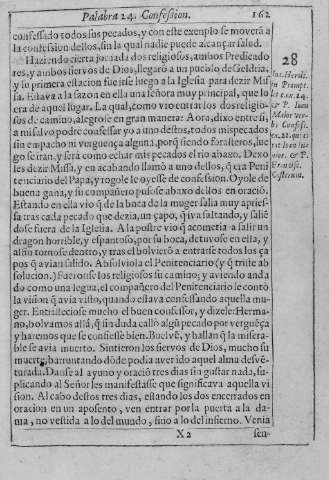 Palabra 24. Confession. 162
confessado todos sus pecados, y con este exemplo se moverà a
la confession dellos, sin la qual nadie puede alcançar salud.
Haziendo cierta jornada dos religiosos, ambos Predicado
res, y ambos siervos de Dios, llegarō a un pueblo de Geldria,
y su primera estacion fue irse luego a la Iglesia para dezir Mis
sa. Estava a la sazon en ella una señora muy principal, que lo
era de aquel lugar. La qual, como vio entrar los dos religio-
sos de camino, alegrose en gran manera: Aora, dixo entre si,
a mi salvo podre confessar yo a uno destos, todos mis pecados
sin empacho ni verguença alguna, porq̃ siendo forasteros, lue
go se iran, y será como echar mis pecados el rio abaxo. Dexo
les dezir Missa, y en acabando llamò a uno dellos, q̃ era Peni
tenciario del Papa, y rogole le oyesse de confession. Oyole de
buena gana, y su compañero pusose abaxo dellos en oraciō.
Estando en ella viò q̃ de la boca de la muger salia muy aprie-
ssa tras cada pecado que dezia, un çapo, q̃ iva saltando, y salié
dose fuera de la Iglesia. A la postre viò q̃ acometia a salir un
dragon horrible, y espantoso, por su boca, detuvose en ella, y
alfin tornose dentro, y tras el bolvierō a entrarse todos los ça
pos q̃ avian salido. Absolviola el Penitenciario (y q̃ triste ab
solucion.) Fueronse los religiosos su camino; y aviendo anda
do como una legua, el compañero del Penitenciario le contò
la visiō q̃ avia visto, quando estava confessando aquella mu-
ger. Entristeciose mucho el buen confessor, y dizele: Herma-
no, bolvamos allà, q̃ sin duda callò algũ pecado por verguēça
y haremos que se confiesse bien. Buelvē, y hallan q̃ la misera-
ble se avia muerto. Sintieron los siervos de Dios, mucho su
muerte, barruntando dōde podia aver ido aquel alma desvē-
turada. Danse al ayuno y oraciō tres dias sin gustar nada, su-
plicando al Señor les manifestasse que significava aquella vi
sion. Al cabo destos tres dias, estando los dos encerrados en
oracion en un aposento, ven entrar por la puerta a la da-
ma, no vestida a lo del mundo, sino a lo del infierno. Venia
X 2 sen-
28
Prompt.
& P. Iuan
Maior ver-